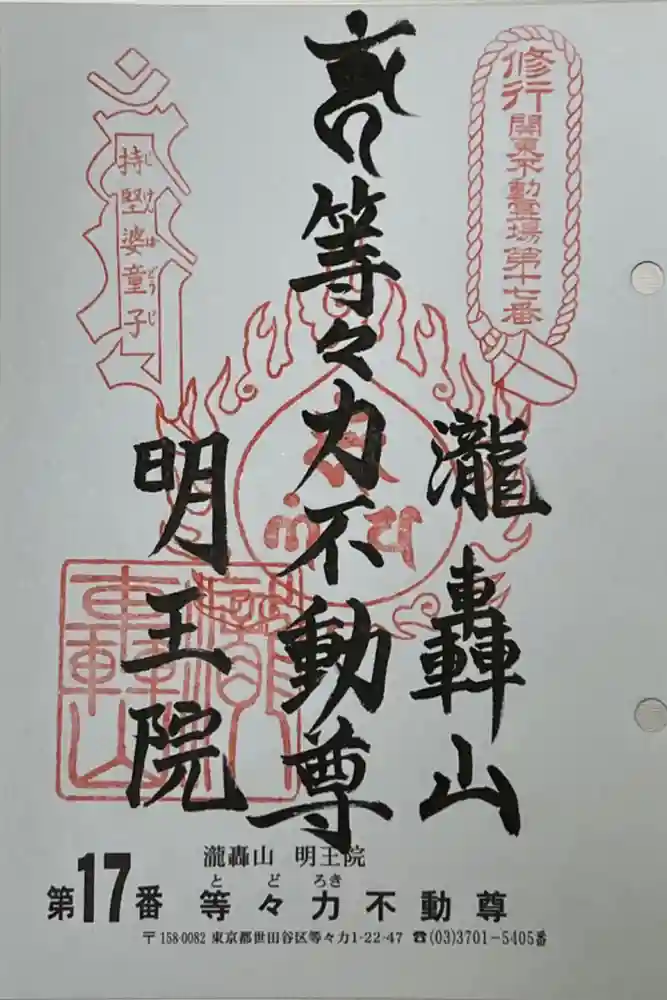 修行
関東不動霊場第十七番
等々力不動尊
瀧轟山
明王院
持堅婆童子
じけんばどうじ
瀧轟山 明王院
第17番 等々力不動尊
とどろき
〒158-0082 東京都世田谷区等々力1-22-47 ☎(03)3701-5405番